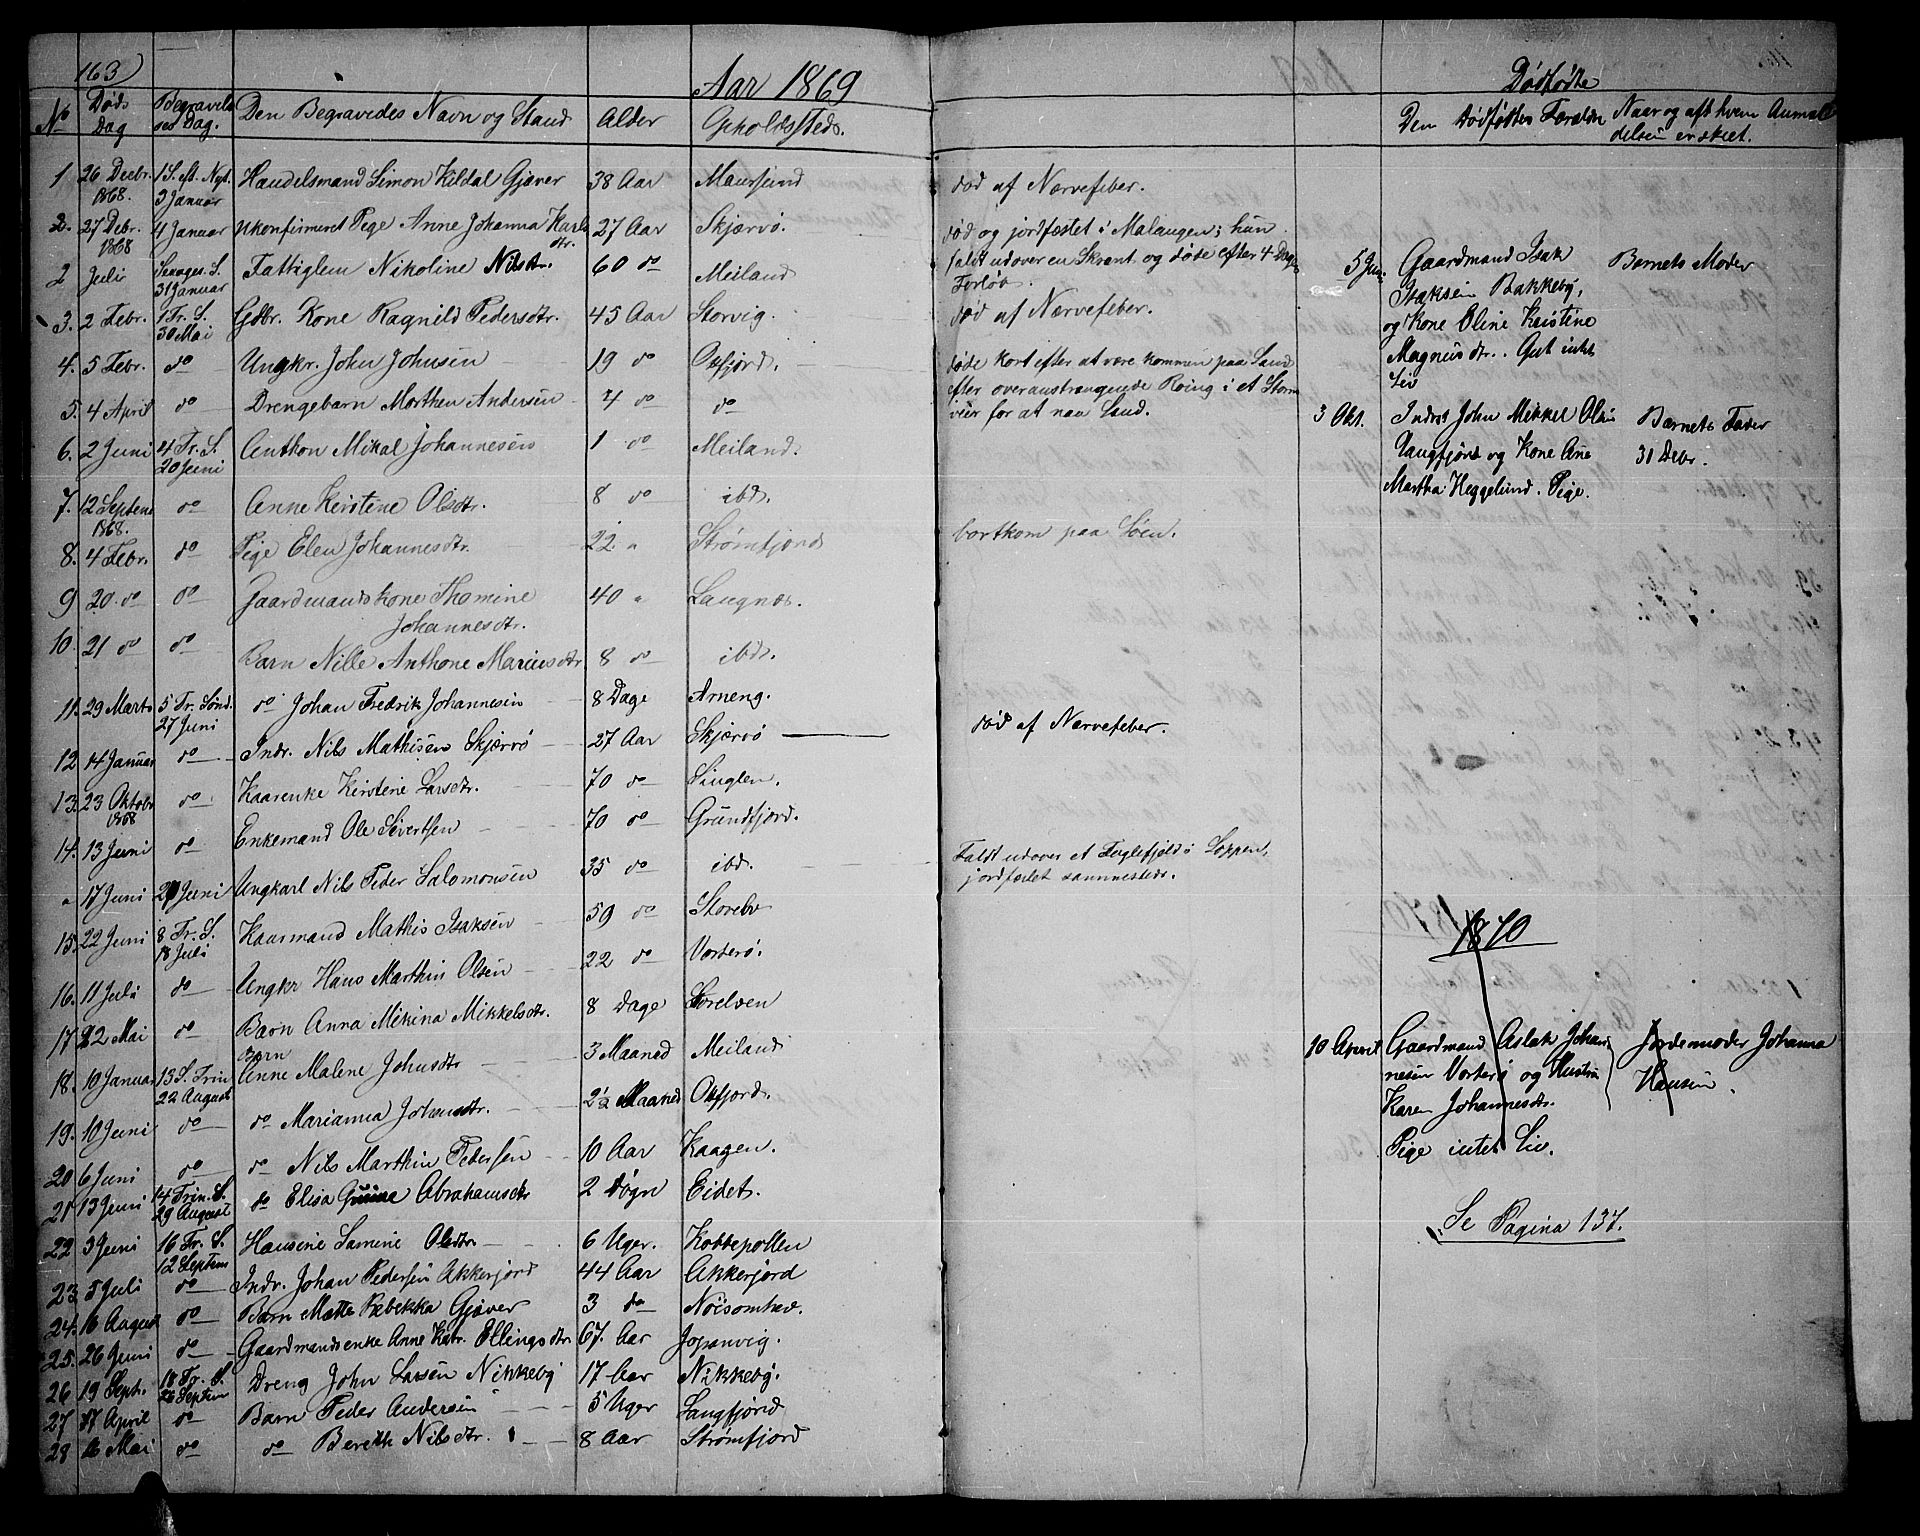 163)
Aar 1869
No Døds Dag Begravelses Dag. Den Begravedes Navn og Stand Alder Opholdssteds.
1 26 Decbr. 1868. 1 S. eft. Nyt. 3 Januar Handelsmand Simon Kildal Gjæver 38 Aar Maursund død af Nærvefeber.
2. 27 Debr. 1868 4 Januar Ukonfirmeret Pige Anne Johanna Karls dtr. 27 Aar Skjærvø. død og jordfæstet i Malangen; hun
faldt udover en Skrænt og døde efter 4 Dages
Forløb.
2 Juli 31 Januar Fattiglem Nikoline Nilsdtr. 60 do Meiland
3. 2 Febr. 1 Tr. S. 30 Mai Gdbr. Kone Ragnild Pedersdtr. 45 Aar Storvig. død af Nærvefeber.
4. 5 Febr. do Ungkr. John Johnsen 19 do Oxfjord. døde kort efter at være kommen paa Land
efter overanstrængende Roing i et Storm
veir for at naa Land.
5. 4 April do Drengebarn Morthen Andersen 7 do do
6. 2 Juni 4 Tr. S. 20 Juni Anthon Mikal Johannesen 1 do Meiland.
7. 12 Septem 1868. do Anne Kirstene Olsdtr. 8 do ibd.
8. 4 Febr. do Pige Elen Johannesdtr. 22 " Strømfjord bortkom paa Søen.
9 20. do do Gaardmandskone Thomine
Johannesdtr. 40 " Langnæs.
10. 21 do do Barn Nille Anthone Mariusdtr. 8 do ibd.
11. 29 Marts 5 Tr. Sønd. 27 Juni do Johan Fredrik Johannesen 8 Dage Arneng.
12 14 Januar do Indr. Nils Mathisen Skjærvø 27 Aar Skjærvø død af Nærvefeber.
13. 23 Oktobr 1868 do Kaarenke Kirstene Larsdtr. 70 do Singlen.
14. 13 Juni do Enkemand Ole Sivertsen 70 do Grundfjord.
" 17 Juni 21 Juni Ungkarl Nils Peder Salomonsen 35 do ibd. Faldt udover et Fuglefjeld i Loppen,
jordfæstet sammesteds.
15. 22 Juni 8 Tr. S. 18 Juli Kaarmand Mathis Isaksen 59 do Storebo
16. 11 Juli do Ungkr Hans Marthin Olsen 22 do Vorterø.
17 22 Mai do Barn Anna Mikina Mikkelsdtr. 8 Dage Sorelven
18. 10 Januar 13 S. Trin 22 August Barn Anne Malene Johnsdtr 3 Maaned Meiland
19. 10 Juni do do Marianna Johnsdtr. 2½ Maaned Oxfjord.
20 6 Juni do do Nils Marthin Pedersen 10 Aar Kaagen.
21 13 Juni 14 Trin. S. 29 August do Elisa Abrahamsdtr 2 Døgn Eidet.
22 3 Juni 16 Tr. S. 12 Septem Hansine Samine Olsdtr. 6 Uger. Kobbepollen
23 5 Juli do Indr. Johan Pedersen Akkerjord 44 Aar Akkerjord
24. 16 August do Barn Mette Rebekka Gjæver 3 do Nøisomhed.
25. 26 Juni do Gaardmandsenke Anne Katr. Ellingsdtr. 67. Aar Jopanvig.
26 19 Sept. 18 Tr. S. 26 Septem Dreng John Larsen Nikkeby 17 Aar Nikkeby.
27 17 April do Barn Peder Andersen 5 Uger Langfjord
28 16 Mai do do Bereth Nilsdtr. 8 Aar Strømfjord
1869
Dødfødte
Den Dødfødtes Forældre Naar og af hvem Anmel
delsen er skeet.
5 Juni Gaardmand Isak
Isaksen Bakkeby,
og Kone Oline Kristine
Magnusdtr. Gut intet
Liv
Barnets Moder
3 Okt. Indrst John Mikkel Olsen
Langfjord og Kone Ane
Martha Heggelund. Pige.
Barnets Fader
31 Debr.
1870
10 April Gaardmand Aslak Johan
nesen Vorterø og Hustru
Karen Johannesdtr.
Pige intet Liv.
Jordemoder Johanna
Hansen.
Se Pagina 137.